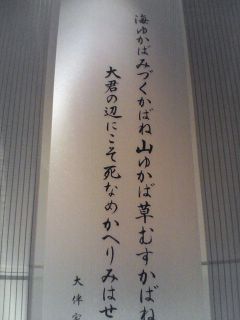 海ゆかばみづくかばね山ゆかば草むすかばね
大君の辺にこそ死なめかへりみはせ
大伴